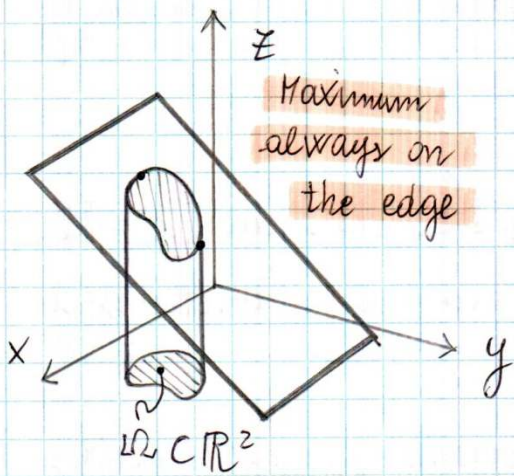 Z
Maximum
always on
the edge
X
y
Ω ⊂ ℝ²